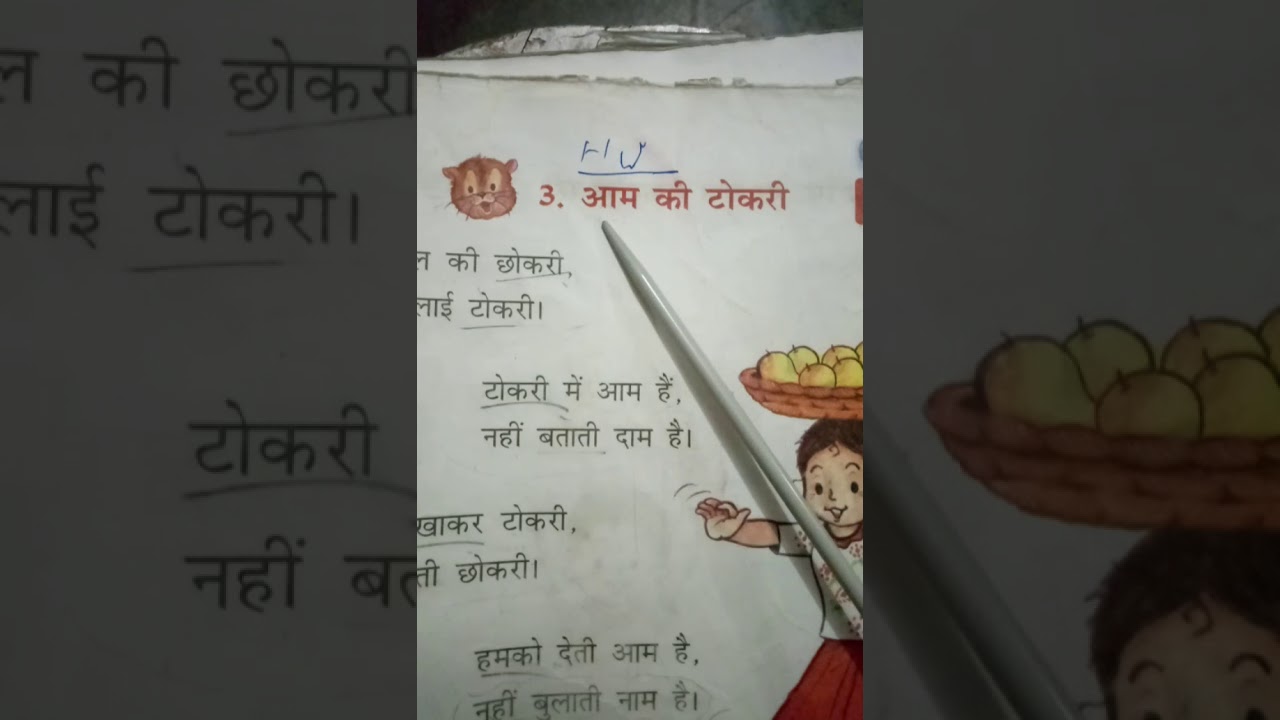 HW
3. आम की टोकरी
की छोकरी,
लाई टोकरी।
टोकरी में आम हैं,
नहीं बताती दाम है।
टोकरी,
छोकरी।
हमको देती आम है,
नहीं बुलाती नाम है।